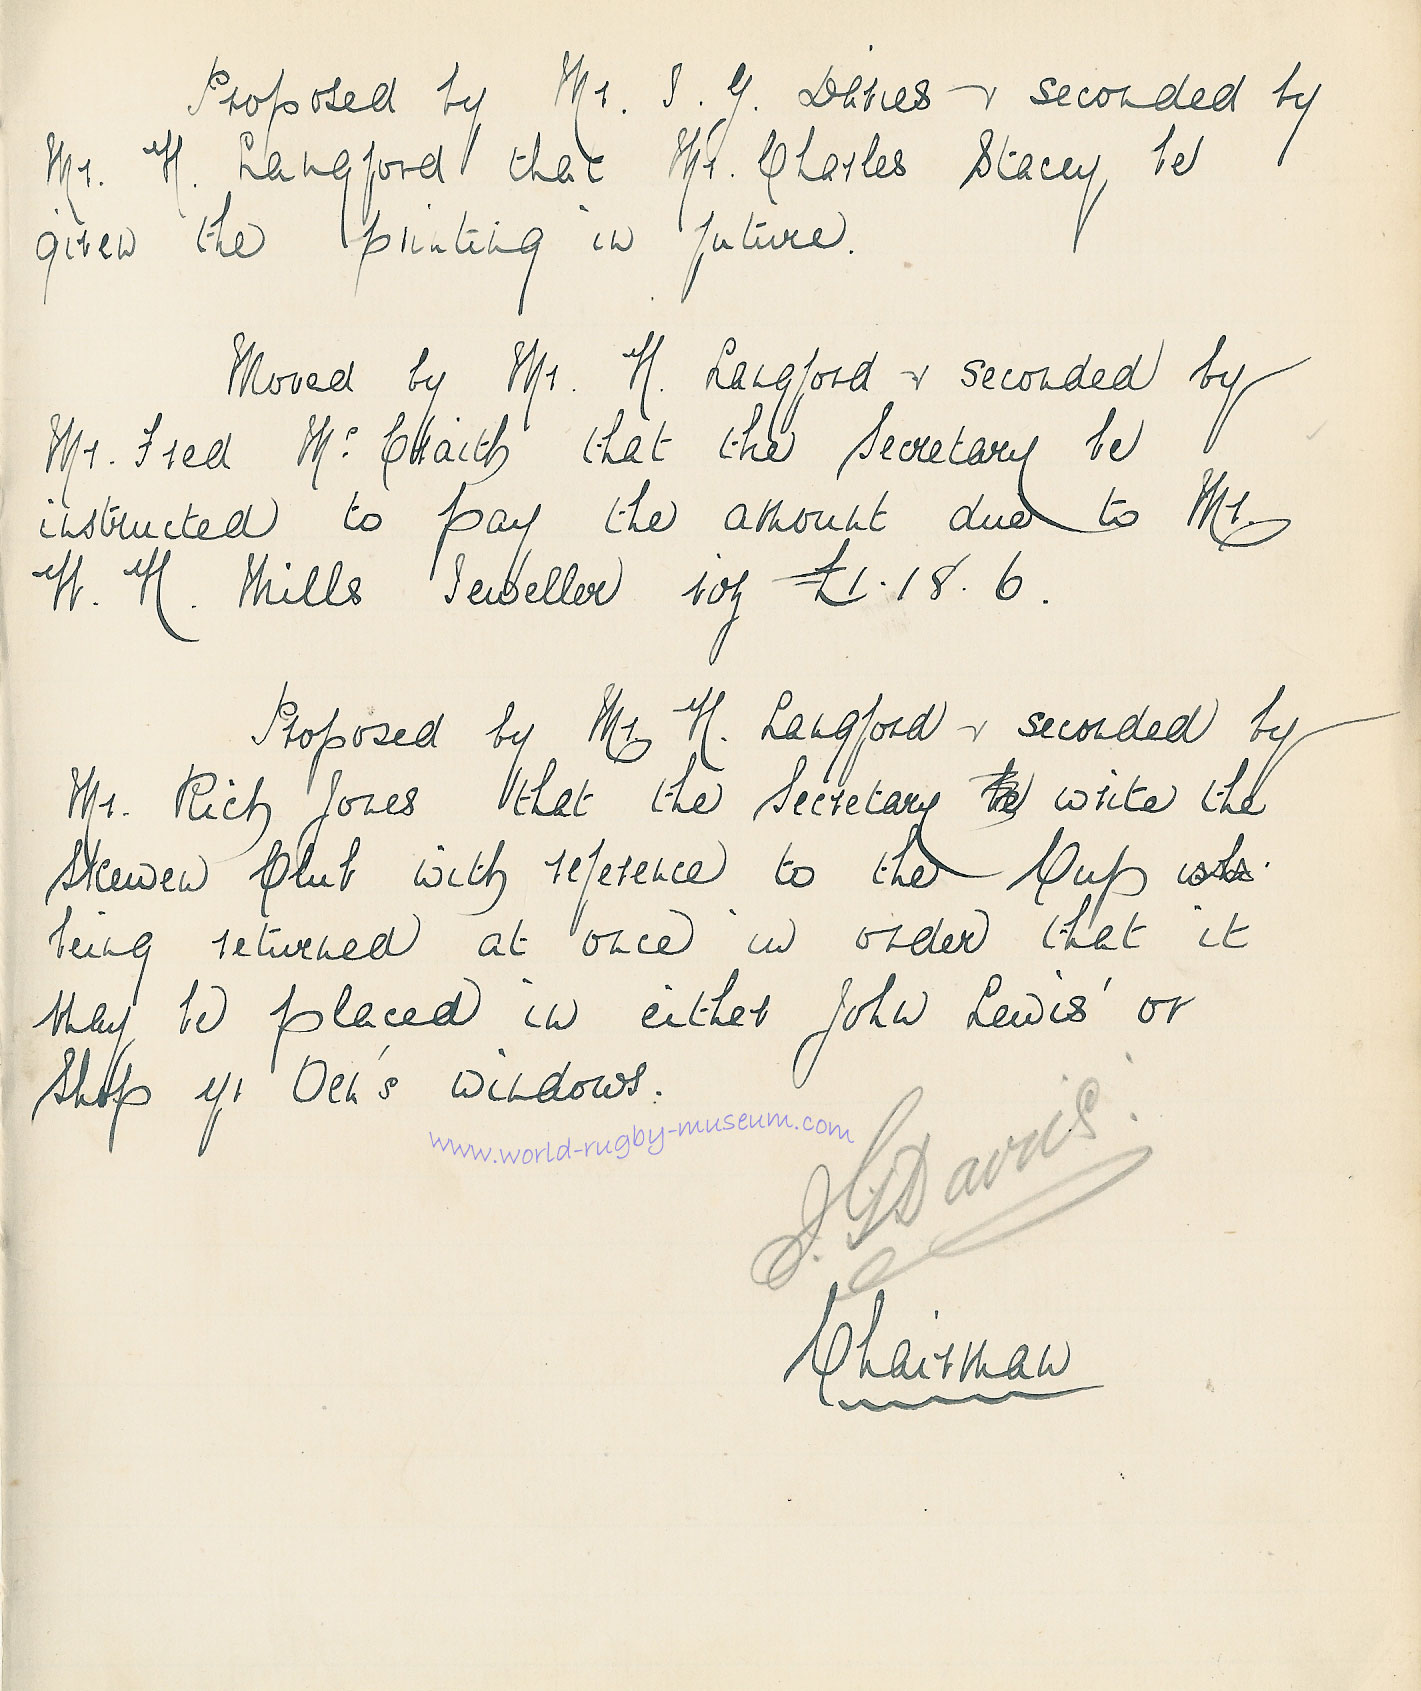 Proposed by Mr. J. G. Davies & seconded by
Mr. H. Langford that Mr. Charles Stacey be
given the printing in future.
Moved by Mr. H. Langford & seconded by
Mr. Fred Mc Craith that the Secretary be
instructed to pay the amount due to Mr.
W. H. Mills Jeweller viz £1.18.6.
Proposed by Mr. H. Langford & seconded by
Mr. Rich Jones that the Secretary write the
Skewen Club with reference to the Cup
being returned at once in order that it
may be placed in either John Lewis' or
Shop yr Oen's windows.
www.world-rugby-museum.com
J. G. Davies.
Chairman